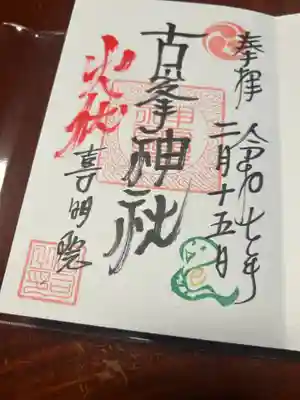 奉拝 令和七年
二月十五日
古峯神社
喜明院